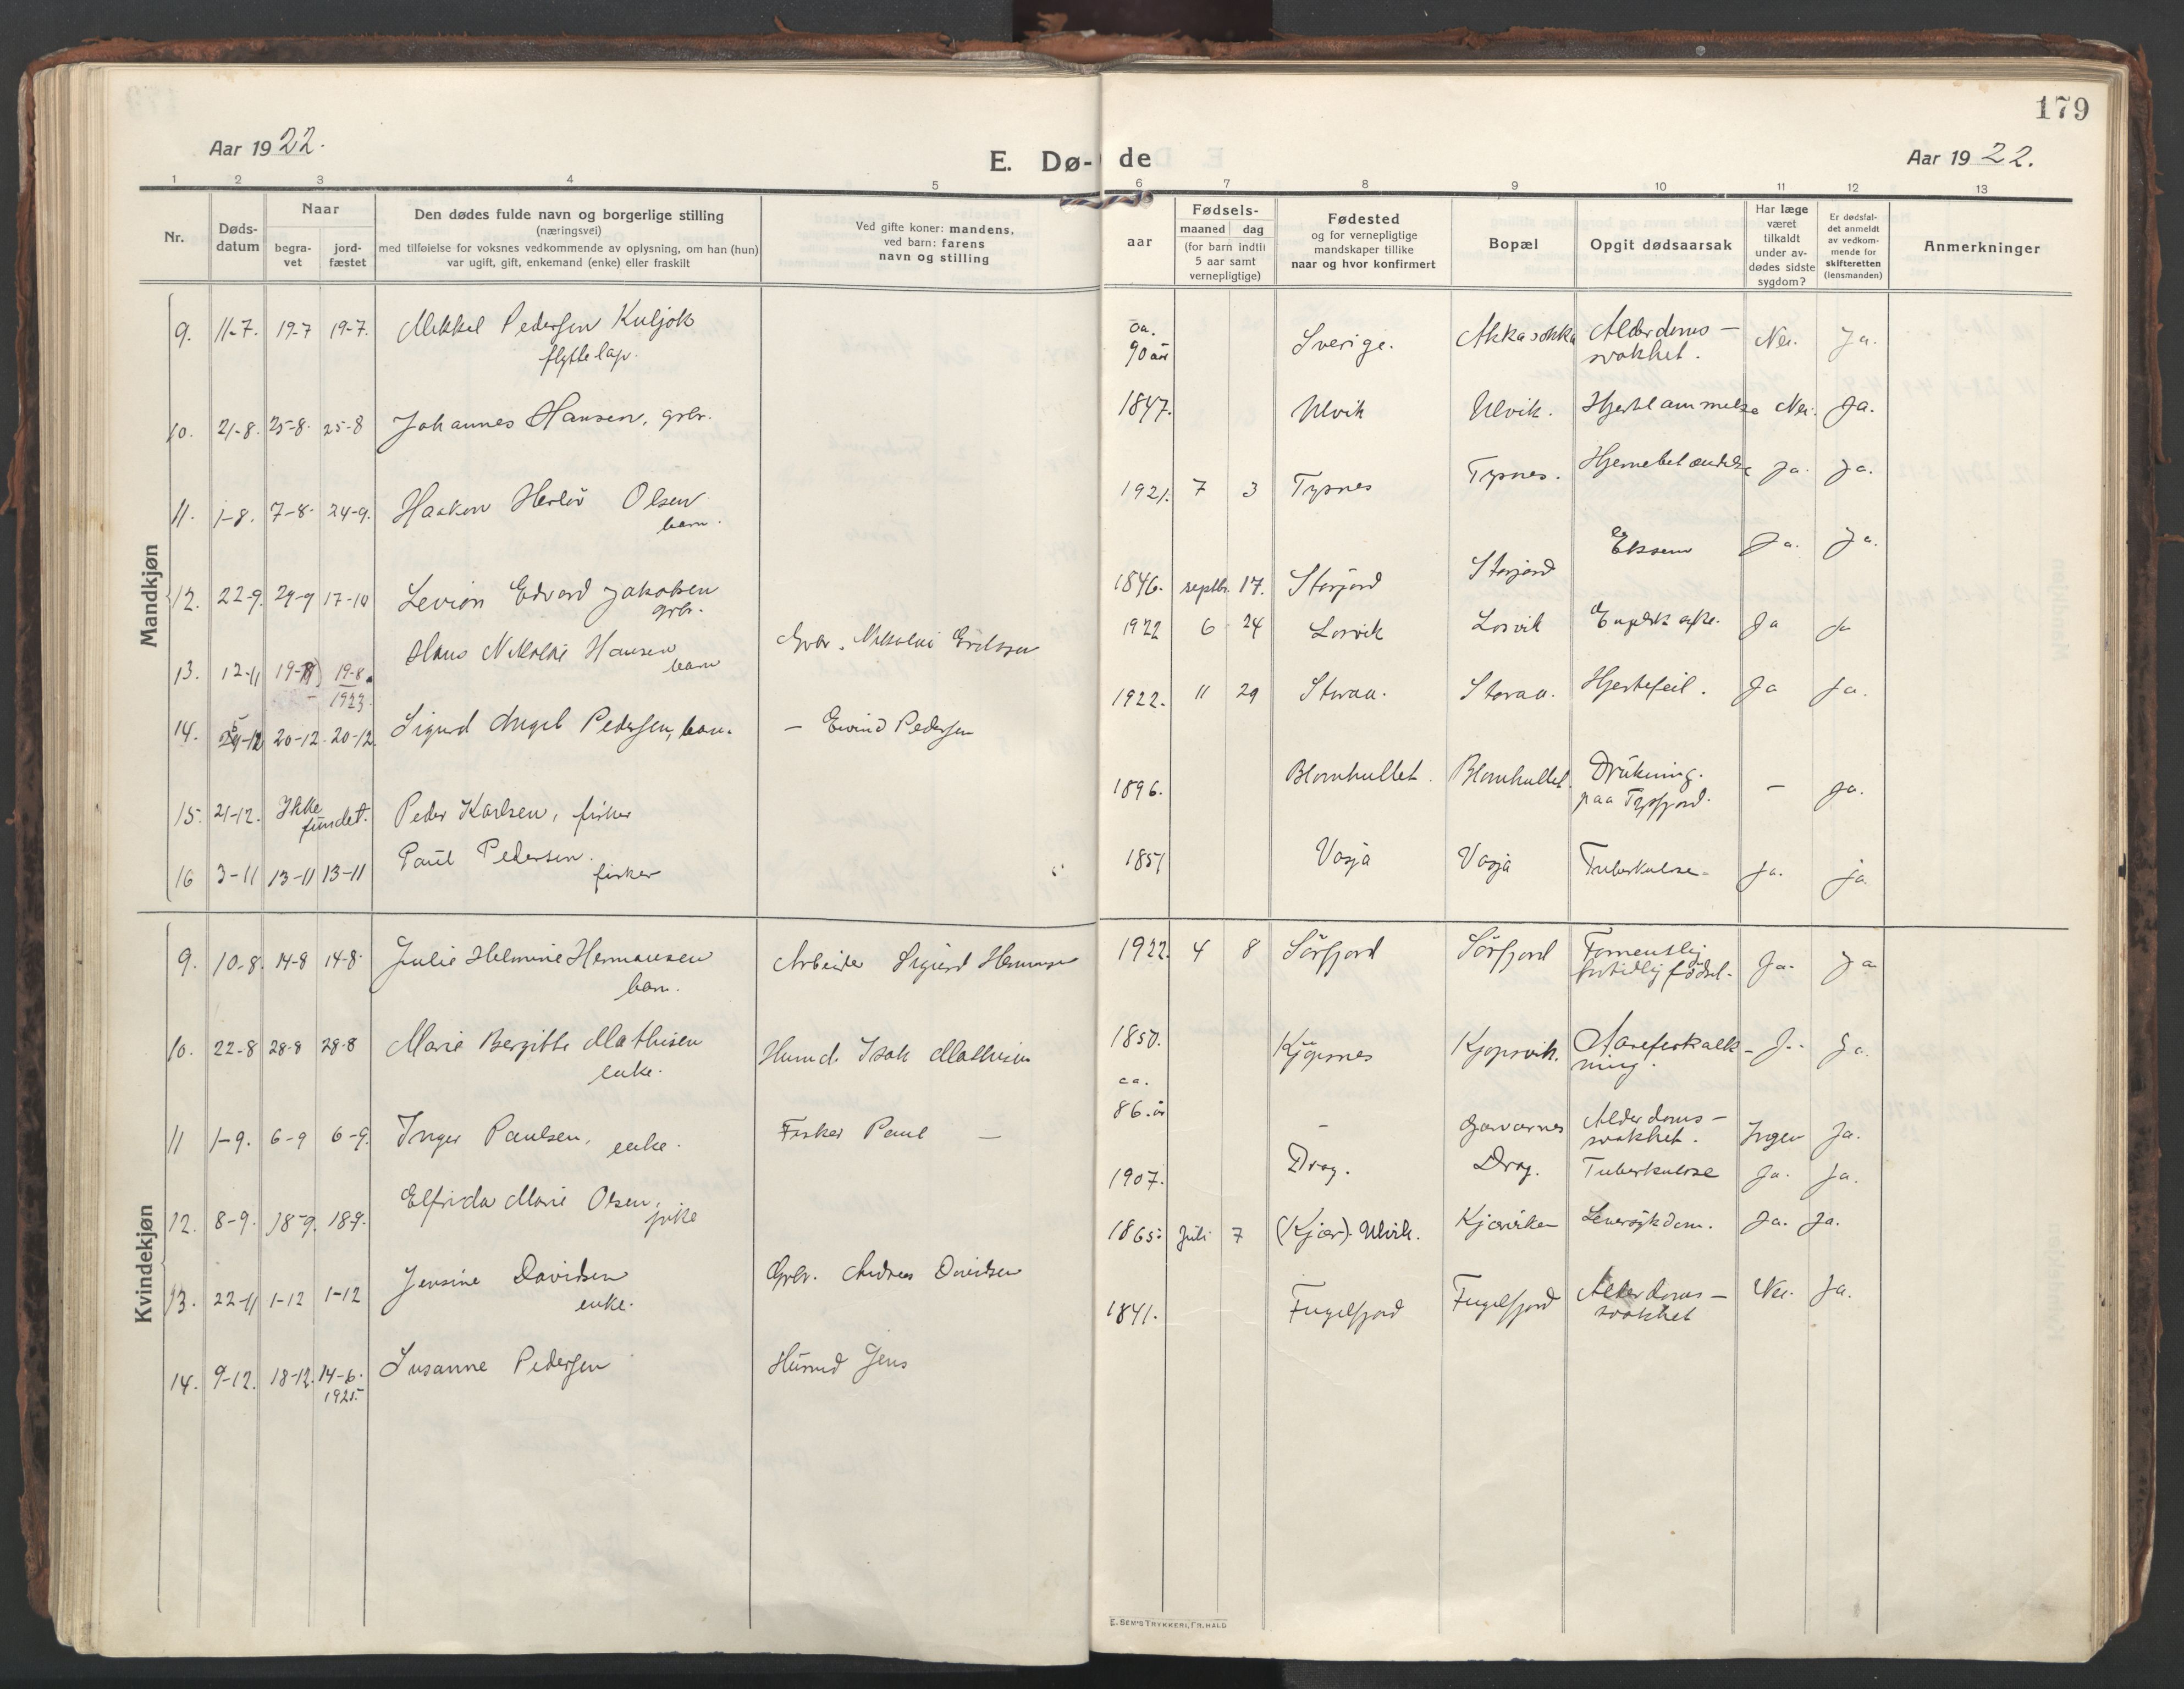 179
Aar 1922.
E. Dø- de
Aar 1922.
1 2 3 4 5 6 7 8 9 10 11 12 13
Nr.
Døds-
datum
Naar
begra-
vet
jord-
fæstet
Den dødes fulde navn og borgerlige stilling
(næringsvei)
med tilføielse for voksnes vedkommende av oplysning, om han (hun)
var ugift, gift, enkemand (enke) eller fraskilt
Ved gifte koner: mandens,
ved barn: farens
navn og stilling
Fødsels-
aar
maaned dag
(for barn indtil
5 aar samt
vernepligtige)
Fødested
og for vernepligtige
mandskaper tillike
naar og hvor konfirmert
Bopæl
Opgit dødsaarsak
Har læge
været
tilkaldt
under av-
dødes sidste
sygdom?
Er dødsfal-
det anmeldt
av vedkom-
mende for
skifteretten
(lensmanden)
Anmerkninger
Mandkjøn
9. 11-7. 19-7 19-7. Mikkel Pedersen Kuljok
flyttelap.
ca.
90 år Sverige. Alderdoms-
svakhet. Nei. Ja.
10. 21-8. 25-8. 25-8 Johannes Hansen, grbr. 1847. Ulvik Ulvik. Hjertelammelse Nei. Ja.
11. 1-8. 7-8. 24-9. Haakon Olsen
barn.
1921. 7 3 Tysnes Tysnes. Hjernebetændelse Ja. Ja.
12. 22-9. 29-9 17-10 Edvard Jakobsen
grbr.
1846. septbr. 17. Storjord Storjord Eksem Ja. Ja.
13. 12-11 19-11 19-8.
1923.
Hans Nikolai Hansen
barn
Grbr. Nikolai 1922 6 24 Losvik Losvik Engelsk syke. Ja Ja
14. 20-12. 20-12. Sigurd Angel Pedersen, barn. — Eivind Pedersen 1922. 11 29 Storaa. Storaa. Hjertefeil. Ja Ja.
15. 21-12. Ikke
fundet.
Peder Karlsen, fisker 1896. Blomhullet. Blomhullet. Drukning.
paa Tysfjord. — Ja.
16 3-11 13-11 13-11 Paul Pedersen.
fisker
1851 Vasja Vasja Tuberkulose. Ja. ja
Kvindekjøn
9. 10-8. 14-8 14-8. Julie Helmine Hermansen
barn.
Arbeider Sigurd 1922. 4 8 Sörfjord Sörfjord Formentlig
fortidlig födsel. Ja. Ja
10. 22-8 28-8 28-8 Marie Bergitte Mathisen
enke.
Husmd. Isak Mathisen 1850. Kjöpsnes Kjöpsvik. Aareforkalk-
ning. Ja. Ja.
11 1-9. 6-9 6-9. Inger Paulsen, enke. Fisker Paul — ca.
86. år — Alderdoms-
svakhet. Ingen Ja.
12. 8-9. 18-9. 18-9. Elfrida Marie Olsen,
pike
1907. Drag. Drag. Tuberkulose Ja. Ja.
13. 22-11 1-12 1-12 Jensine Davidsen
enke.
Grbr. Andreas Davidsen 1865. Juli 7 (Kjær). Ulvik. Kjærviken Leversykdom. Ja. Ja.
14. 9-12. 18-12. 14-6.
1925.
Susanne Pedersen Husmd Jens 1841. Fugelfjord Fugelfjord Alderdoms-
svakhet Nei. Ja.
E. SEM'S TRYKKERI, FR.HALD